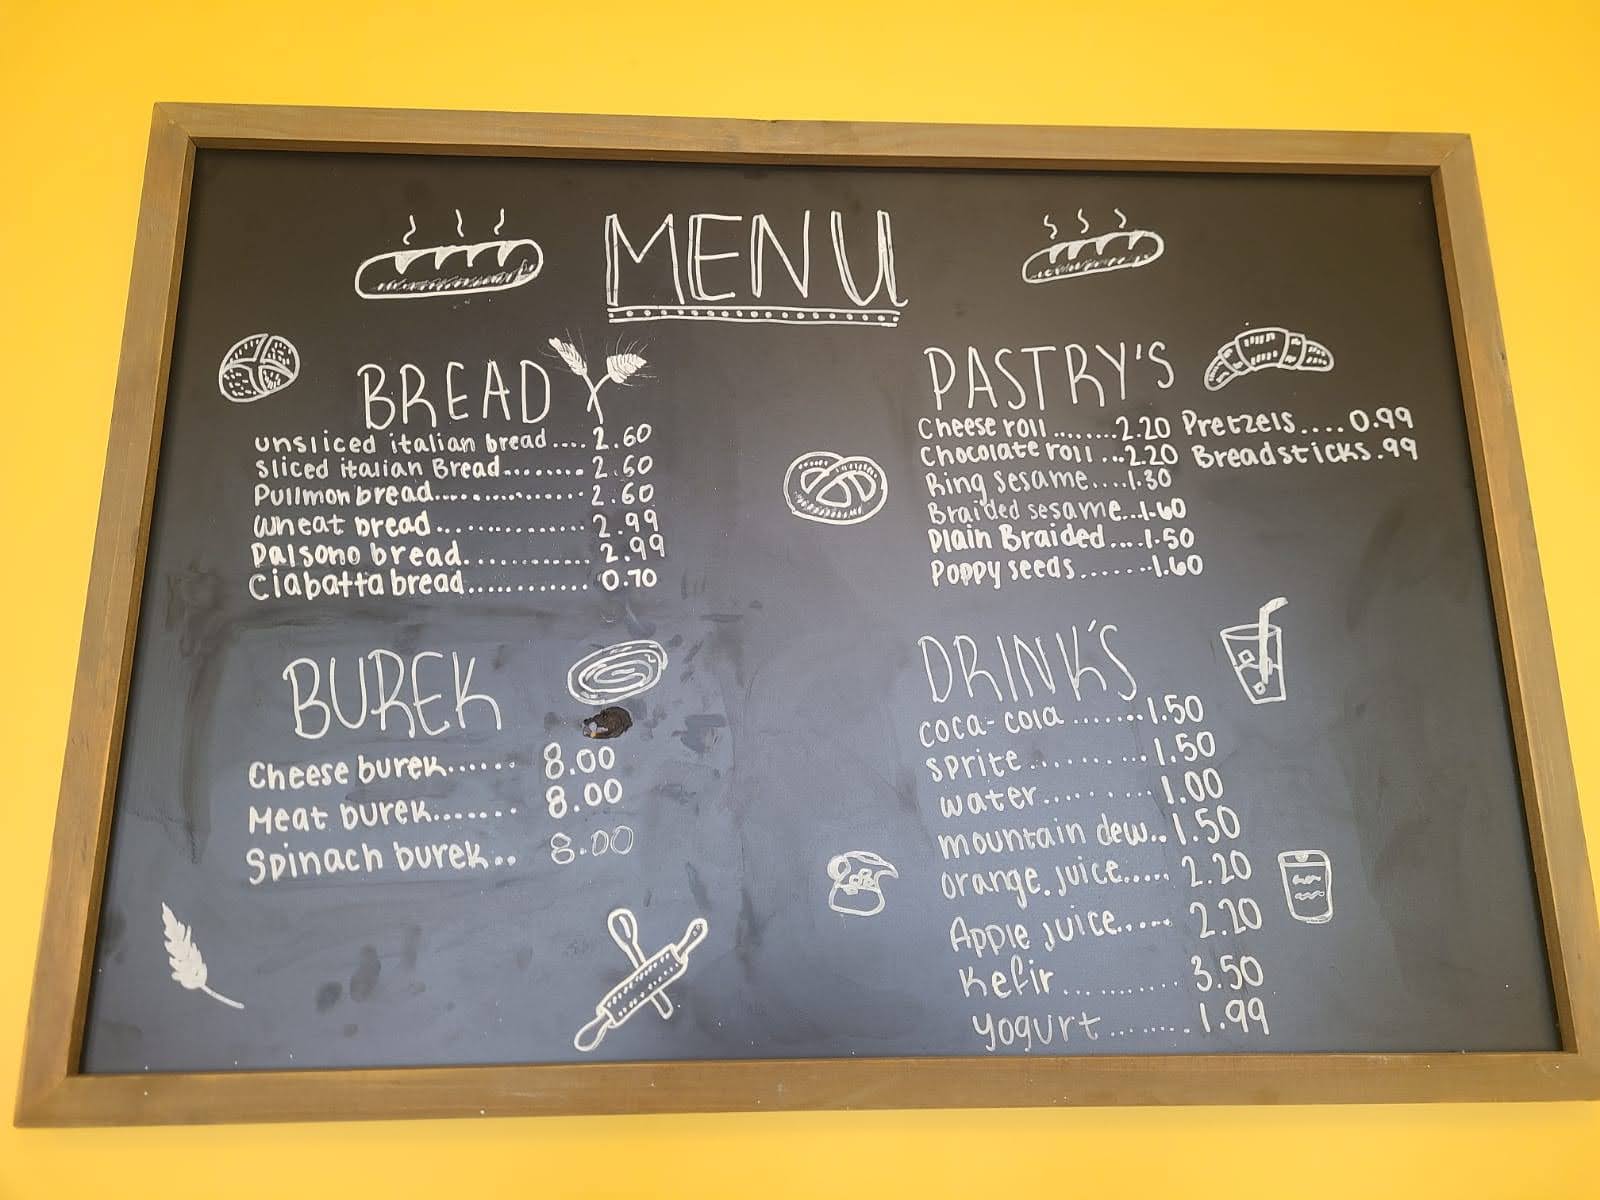 MENU
BREAD
unsliced italian bread.... 2.60
Sliced italian Bread........ 2.60
Pullmon bread............... 2.60
Wheat bread............... 2.99
Dalsono bread............. 2.99
Ciabatta bread............ 0.70
BUREK
Cheese burek...... 8.00
Meat burek....... 8.00
Spinach burek.. 8.00
PASTRY'S
Cheese roll ........2.20 Pretzels.... 0.99
Chocolate roll ...2.20 Breadsticks .99
Ring sesame....1.30
Braided sesame...1.60
Plain Braided....1.50
Poppy seeds.......1.60
DRINK'S
coca-cola .......1.50
sprite..........1.50
water.......... 1.00
mountain dew..1.50
orange juice..... 2.20
Apple juice...... 2.20
Kefir........... 3.50
yogurt........1.99